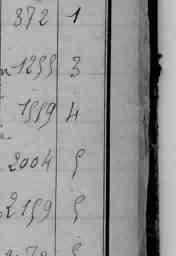 872 1
1255 3
1559 4
2004 5
2159 5